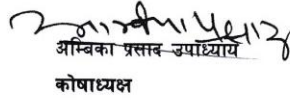 अम्बिका प्रसाद उपाध्याय
कोषाध्यक्ष